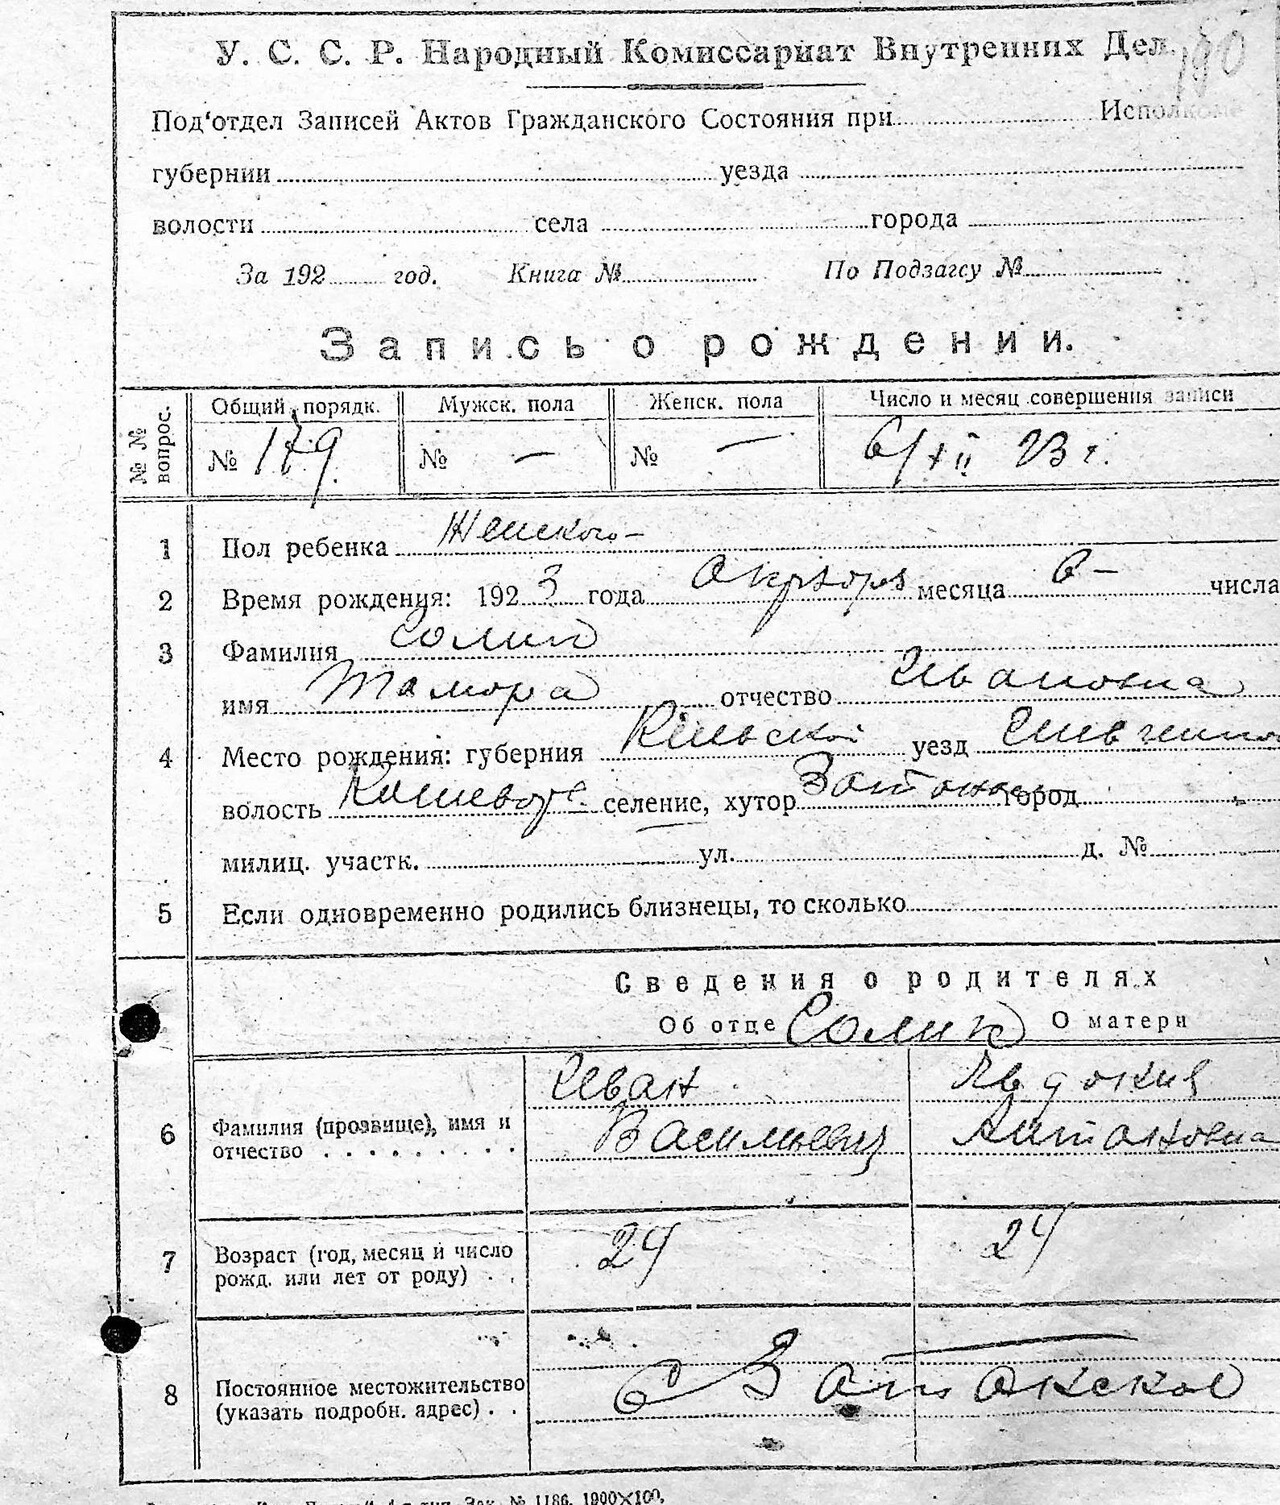 190
У. С. С. Р. Народный Комиссариат Внутренних Дел.
Под'отдел Записей Актов Гражданского Состояния при Исполкоме
губернии уезда
волости села города
За 192 год. Книга № По Подзагсу №
Запись о рождении.
№ № вопрос. Общий порядк. Мужск. пола Женск. пола Число и месяц совершения записи
№ 179 № — № — 6/XII 23 г.
1 Пол ребенка Женского —
2 Время рождения: 1923 года Октября месяца 6 — числа
3 Фамилия Солип
имя Тамора отчество Ивановна
4 Место рождения: губерния уезд
волость селение, хутор город
милиц. участк. ул. д. №
5 Если одновременно родились близнецы, то сколько
Сведения о родителях
Об отце Солик О матери
6 Фамилия (прозвище), имя и отчество Иван Васильевич Явдокия Антоновна
7 Возраст (год, месяц и число рожд. или лет от роду) 24 24
8 Постоянное местожительство (указать подробн. адрес) с Затонское
Зак. № 1186. 1900×100.